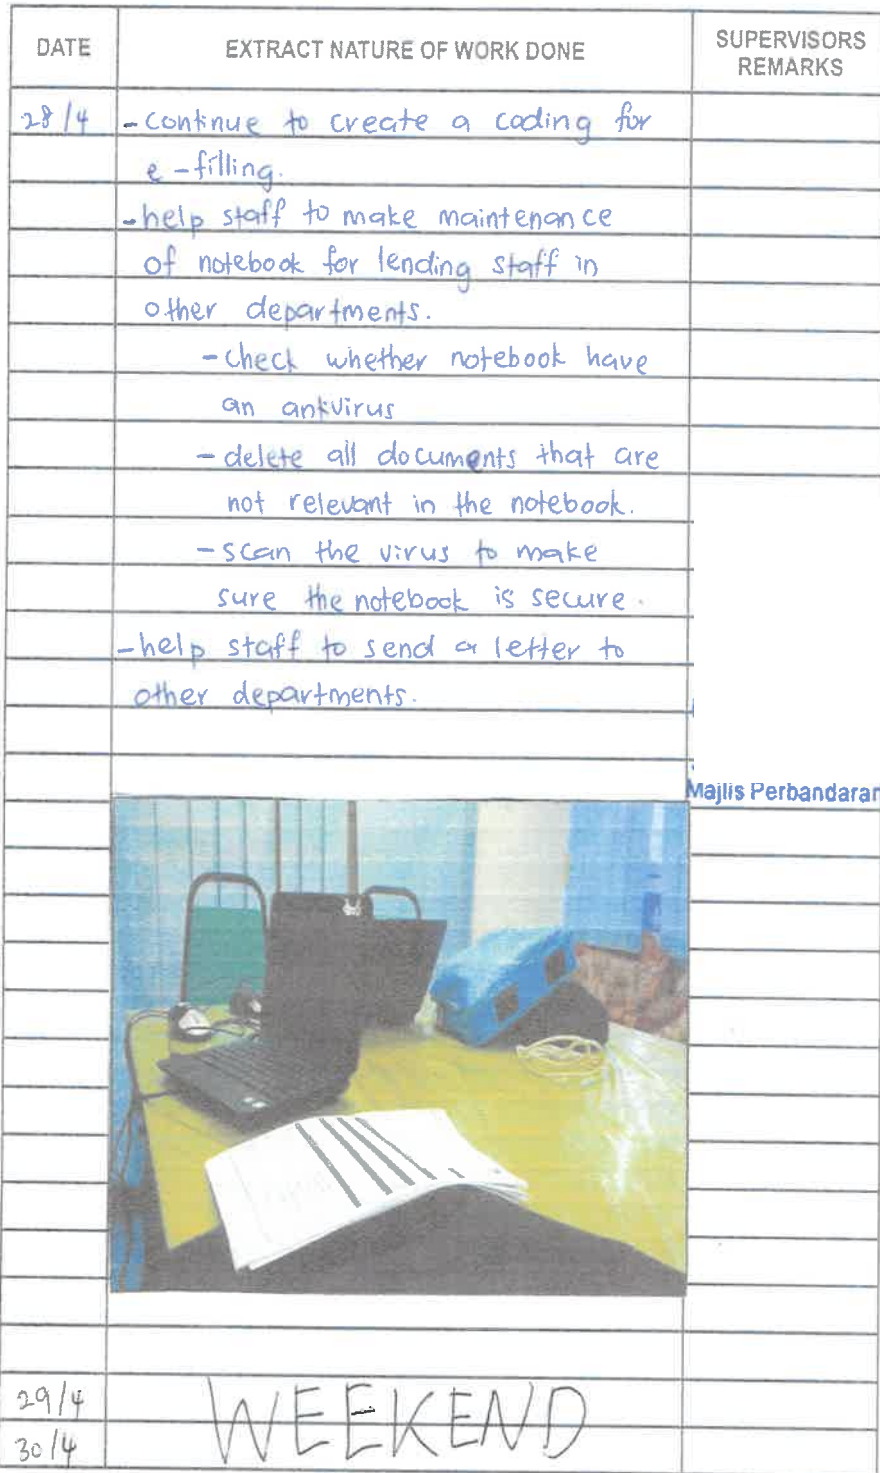 DATE
EXTRACT NATURE OF WORK DONE
SUPERVISORS
REMARKS
28/4
- continue to create a coding for
e-filling.
- help staff to make maintenance
of notebook for lending staff in
other departments.
- check whether notebook have
an antivirus
- delete all documents that are
not relevant in the notebook.
- scan the virus to make
sure the notebook is secure.
- help staff to send a letter to
other departments.
Majlis Perbandaran
29/4
30/4
WEEKEND